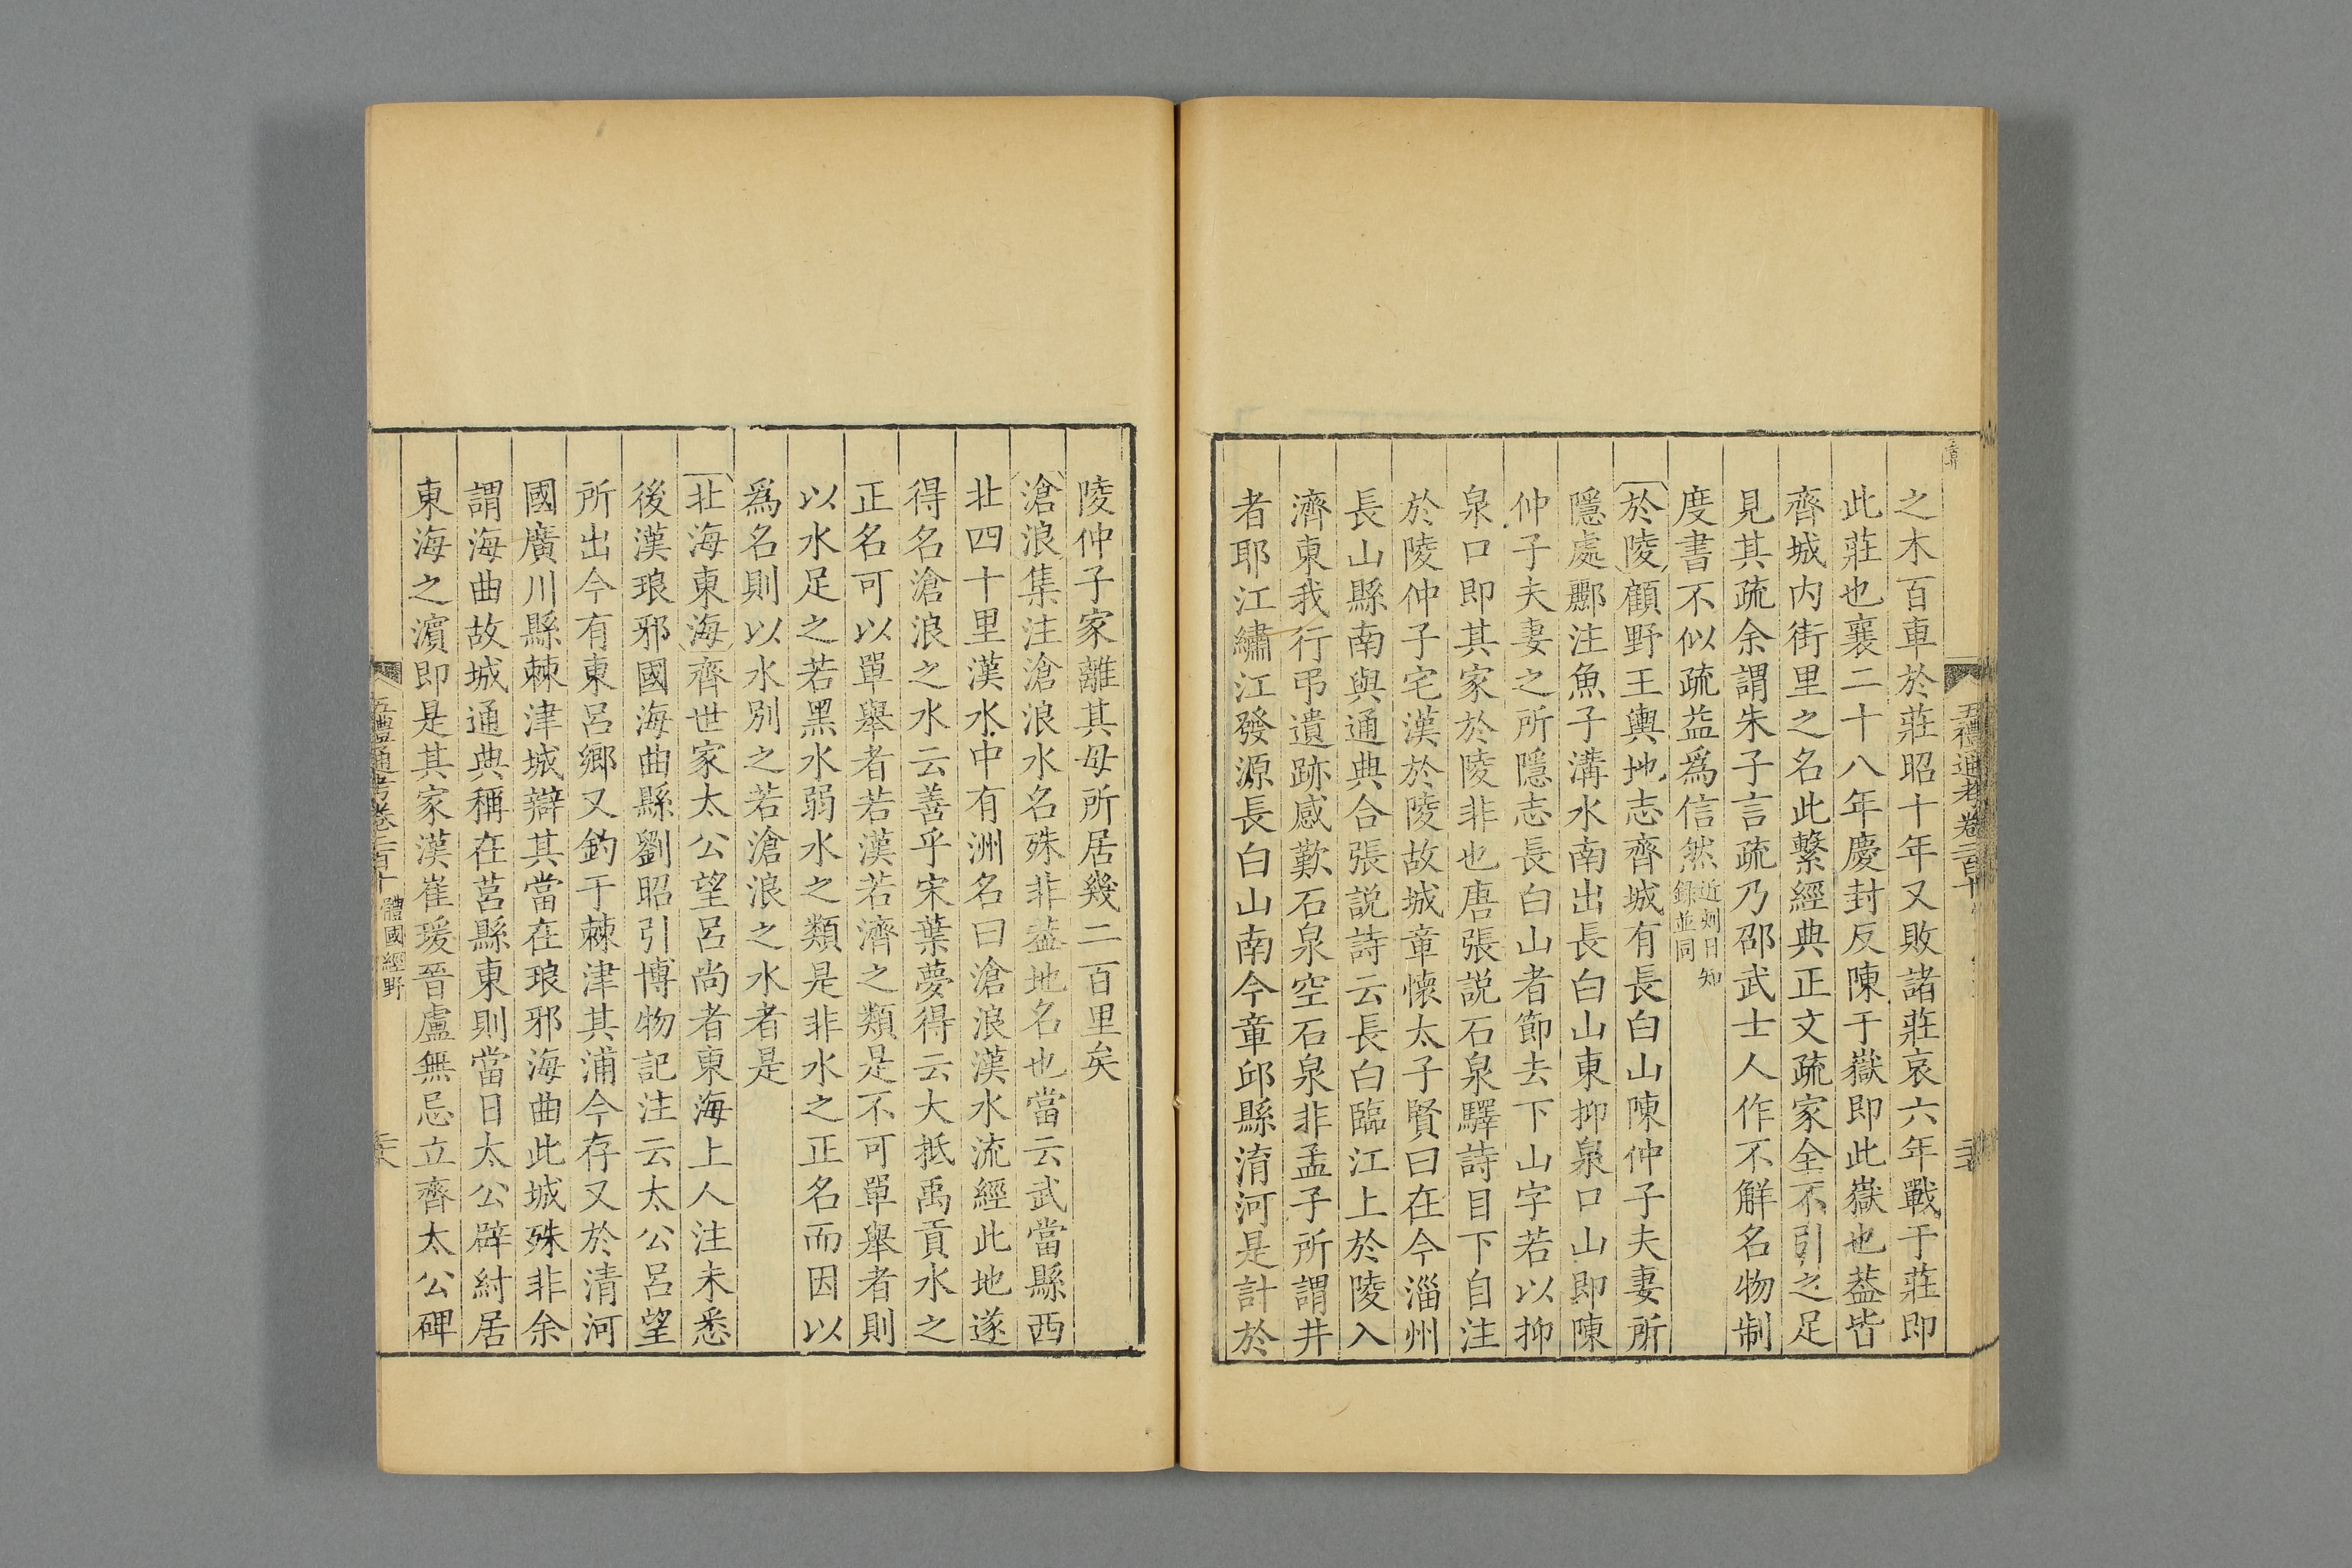 之木百車於莊昭十年又敗諸莊哀六年戰于莊即
此莊也襄二十八年慶封反陳于嶽即此嶽也葢皆
齊城内街里之名此繫經典正文疏家全不引之足
見其疏余謂朱子言疏乃邵武士人作不解名物制
度書不似疏益爲信然近刻日知錄並同
於陵顧野王輿地志齊城有長白山陳仲子夫妻所
隱處酈注魚子溝水南出長白山東抑泉口山即陳
仲子夫妻之所隱志長白山者節去下山字若以抑
泉口即其家於陵非也唐張説石泉驛詩目下自注
於陵仲子宅漢於陵故城章懷太子賢曰在今淄州
長山縣南與通典合張説詩云長白臨江上於陵入
濟東我行弔遺跡感歎石泉空石泉非孟子所謂井
者耶江繡江發源長白山南今章邱縣淯河是計於
陵仲子家離其母所居幾二百里矣
滄浪集注滄浪水名殊非葢地名也當云武當縣西
北四十里漢水中有洲名曰滄浪漢水流經此地遂
得名滄浪之水云善乎宋葉夢得云大抵禹貢水之
正名可以單舉者若漢若濟之類是不可單舉者則
以水足之若黑水弱水之類是非水之正名而因以
爲名則以水別之若滄浪之水者是
北海東海齊世家太公望呂尚者東海上人注未悉
後漢琅邪國海曲縣劉昭引博物記注云太公呂望
所出今有東呂鄉又釣于棘津其浦今存又於清河
國廣川縣棘津城辯其當在琅邪海曲此城殊非余
謂海曲故城通典稱在莒縣東則當日太公辟紂居
東海之濵即是其家漢崔瑗晉盧無忌立齊太公碑
五禮通考卷二百十 體國經野